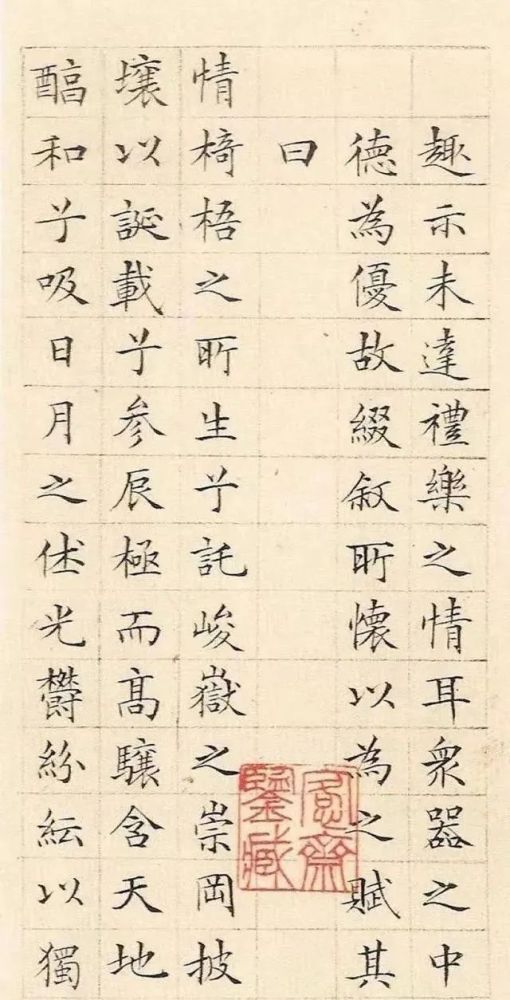 趣示未達禮樂之情耳衆器之中
德為優故綴敘所懷以為之賦其
曰
情椅梧之所生兮託峻嶽之崇岡披
壤以誕載兮参辰極而髙驤含天地
醕和兮吸日月之休光鬱紛紜以獨
齋
鑒藏